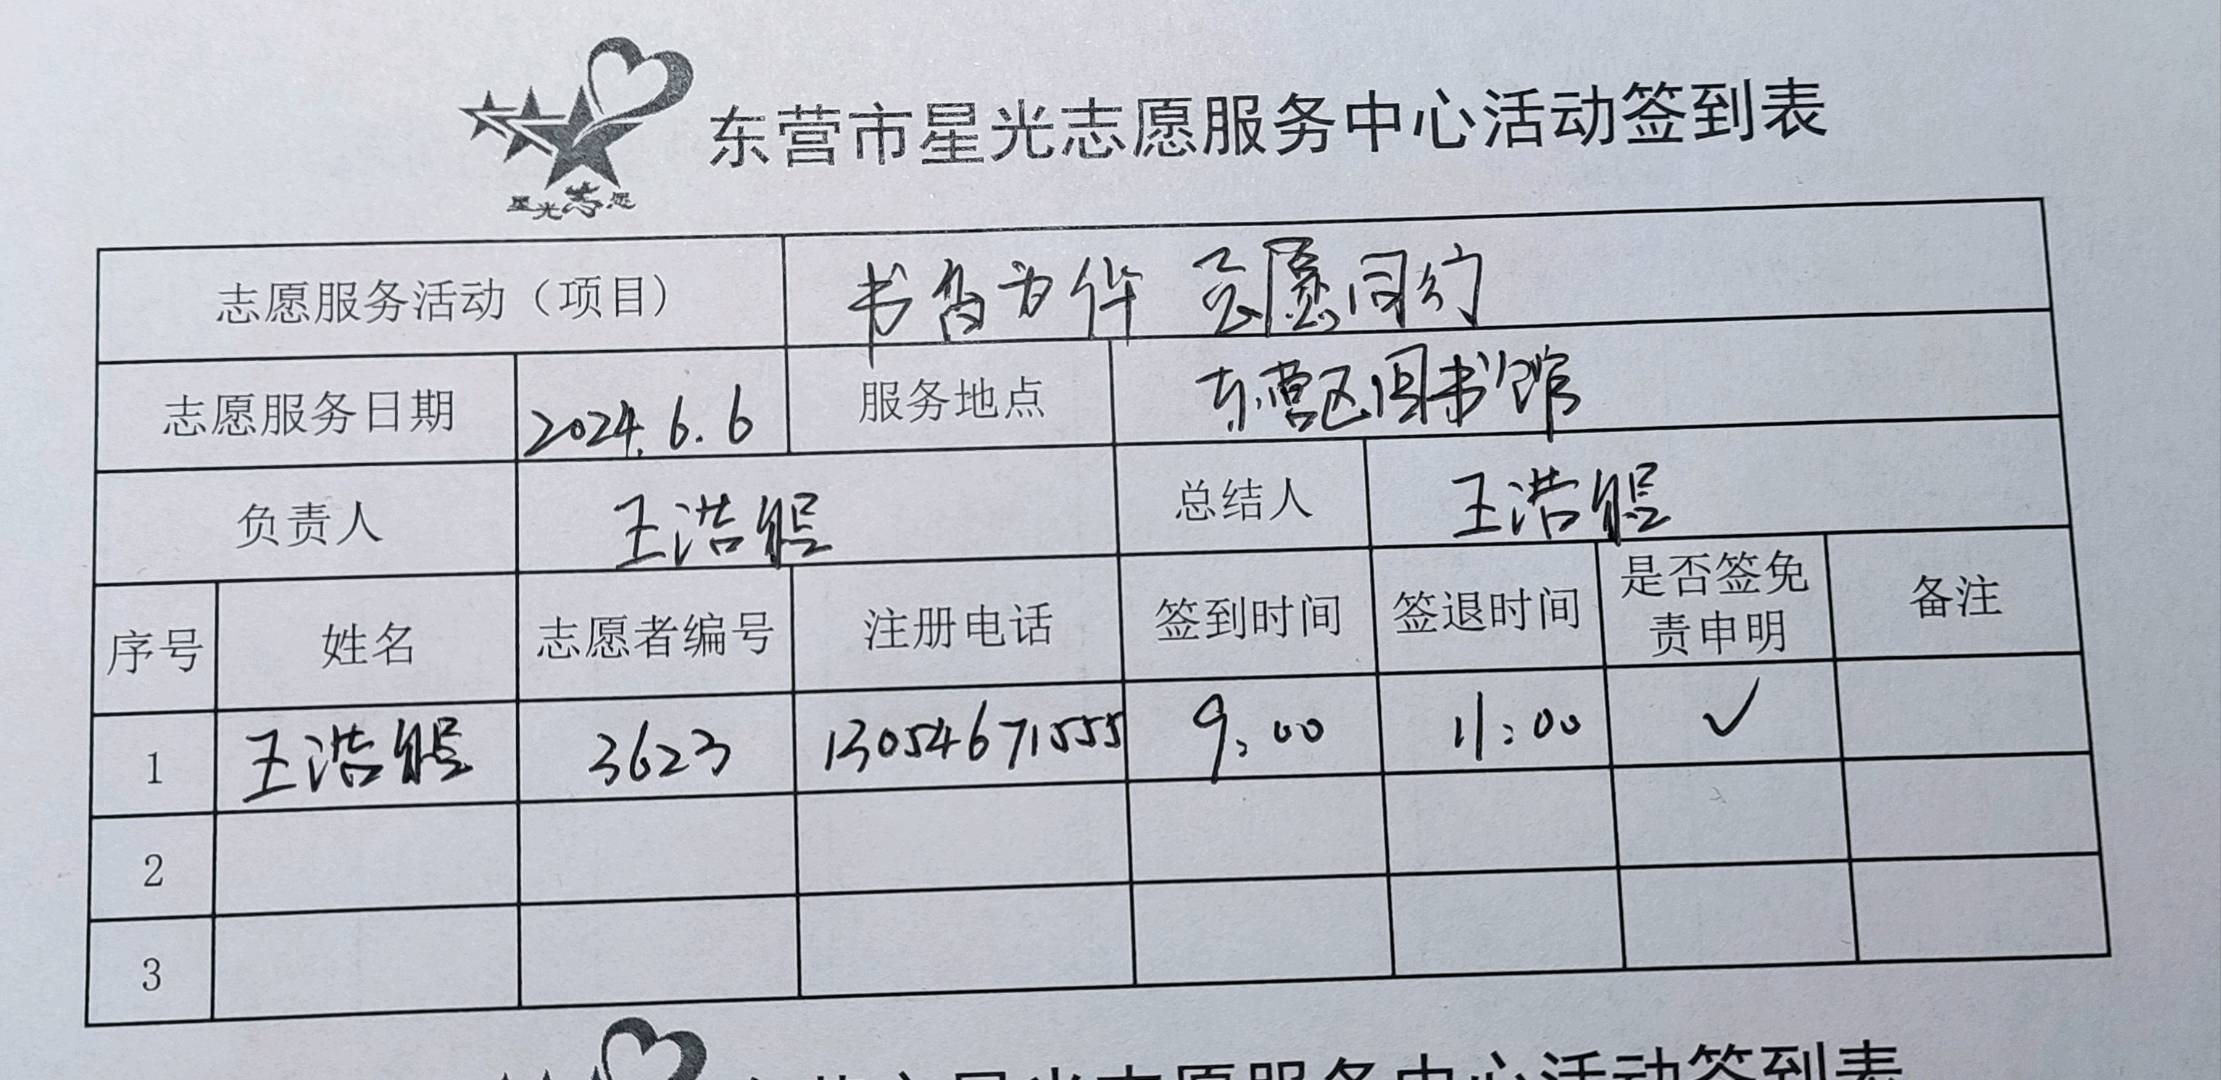 星光志愿
东营市星光志愿服务中心活动签到表
志愿服务活动（项目） 书香为伴 志愿同行
志愿服务日期 2024.6.6 服务地点 东营区图书馆
负责人 王浩 总结人 王浩
序号 姓名 志愿者编号 注册电话 签到时间 签退时间 是否签免责申明 备注
1 王浩 3623 13054671555 9:00 11:00 ✓
2
3
星光志愿服务中心活动签到表